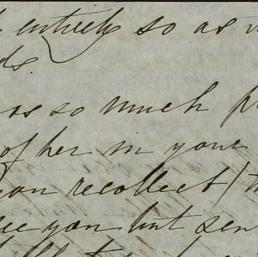 entirely so as
ds.
as so much
of her in your
you recollect
see you but sen